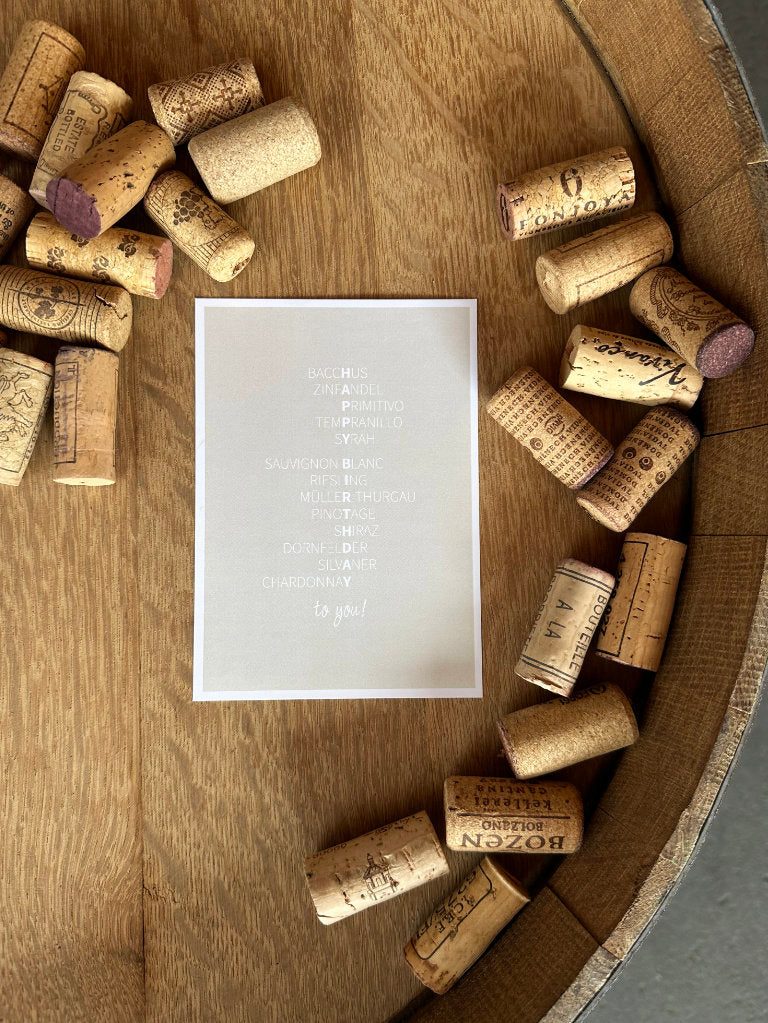 ESTATE
BOTTLED
6
FONJOYA
Vivanco
BACCHUS
ZINFANDEL
PRIMITIVO
TEMPRANILLO
SYRAH
SAUVIGNON BLANC
RIESLING
MÜLLER-THURGAU
PINOTAGE
SHIRAZ
DORNFELDER
SILVANER
CHARDONNAY
to you!
BOUTEILLE
A LA
BOZEN
BOLZANO
kellerei
CANTINA